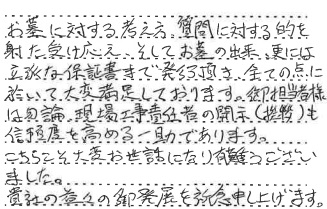 お墓に対する考え方、質問に対する的を
射た受け応え、そしてお墓の出来、更には
立派な保証書まで発行頂き、全ての点に
於いて大変満足しております。御担当者様
は勿論、現場工事責任者の開示(挨拶)も
信頼度を高める一助であります。
こちらこそ大変お世話になり有難うござい
ました。
貴社の益々の御発展を祈念申し上げます。